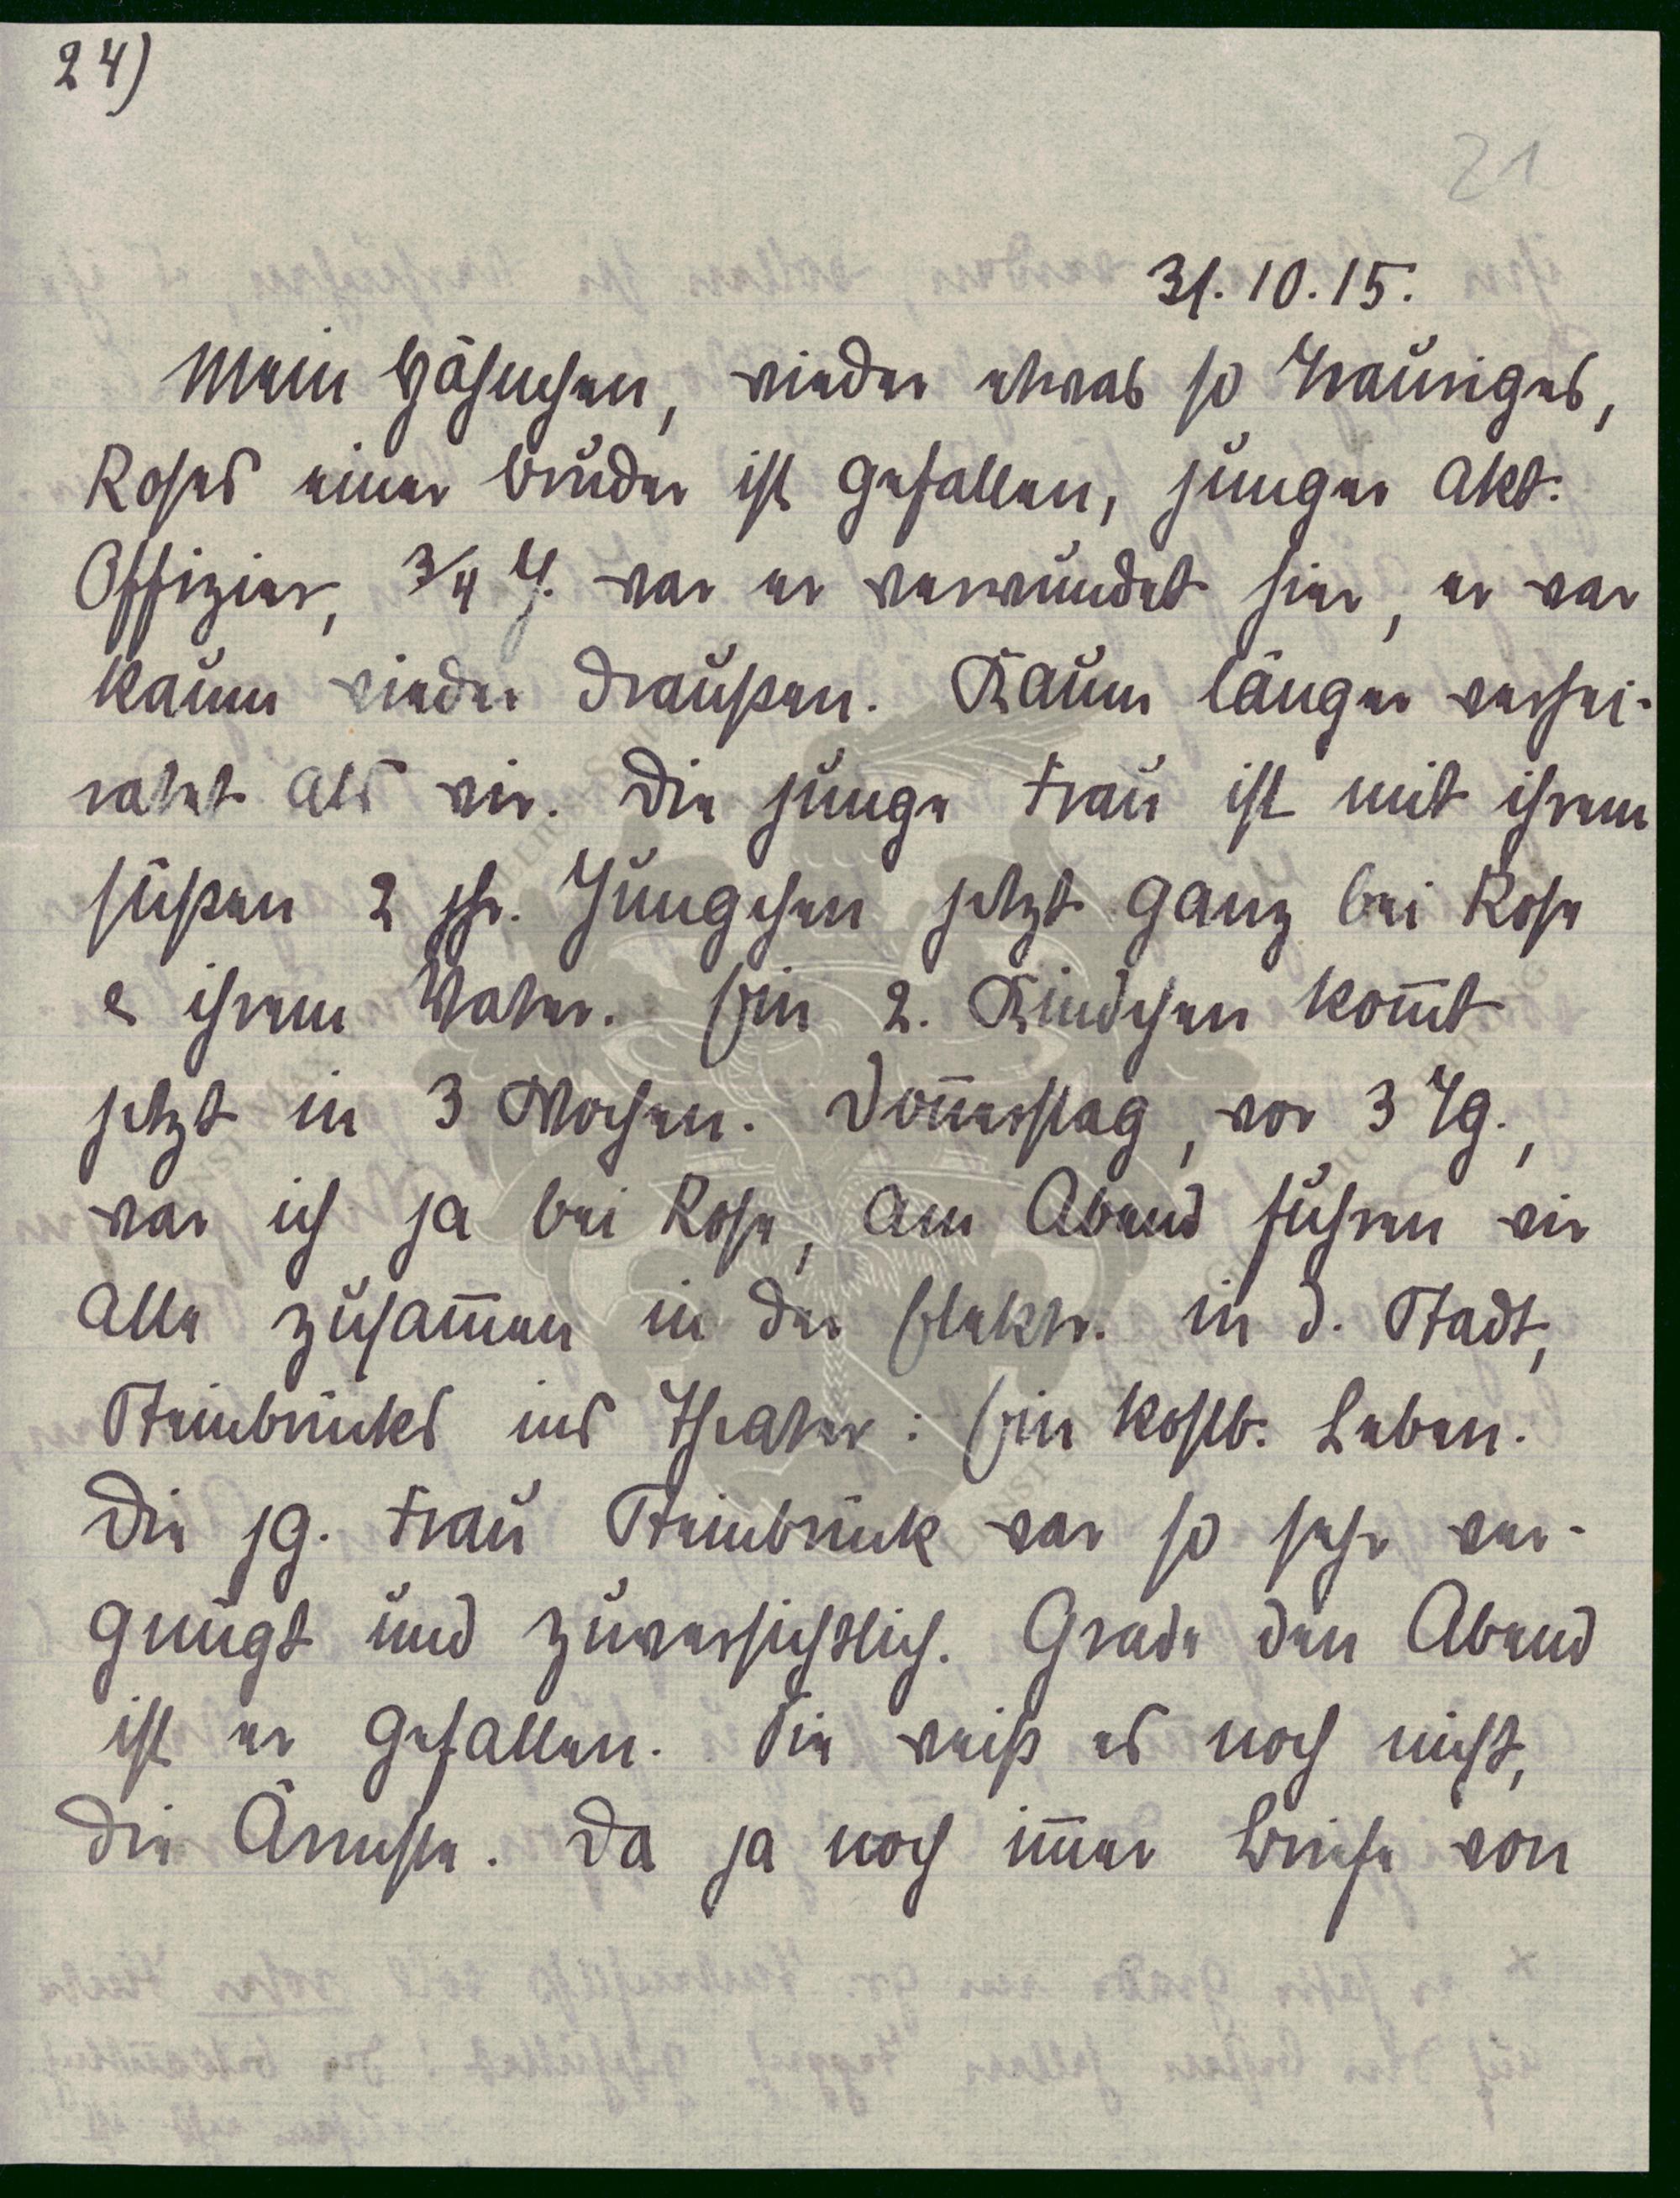 24)
21
31.10.15.
Mein Häschen, wieder etwas so Trauriges,
Roses einer Bruder ist gefallen, junger akt.
Offizier, 3/4 J. war er verwundet hier, er war
kaum wieder draußen. Kaum länger verhei-
ratet als wir. Die junge Frau ist mit ihrem
süßen 2 jhr. Jungchen jetzt ganz bei Rose
& ihrem Vater. Ein 2. Kindchen kom̅t
jetzt in 3 Wochen. Don̅erstag, vor 3 Tg.,
war ich ja bei Rose, am Abend fuhren wir
alle zusam̅en in der Elektr. in d. Stadt,
Steinbrücks ins Theater: Ein kostb. Leben.
Die jg. Frau Steinbrück war so sehr ver-
gnügt und zuversichtlich. Grade den Abend
ist er gefallen. Sie weiß es noch nicht,
die Ärmste. Da ja noch im̅er Briefe von